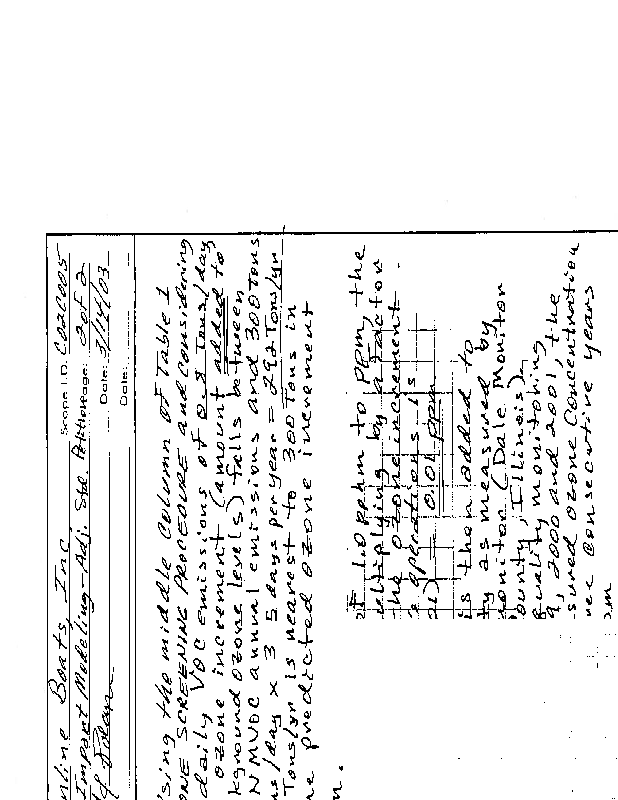 nline Boats, Inc
Scope I.D. C02C005
Impact Modeling - Adj. Std. Petition
Page: 2 of 2
Date: 3/14/03
Date:
sing the middle column of Table 1
ONE SCREENING PROCEDURE and considering
daily VOC emissions of 0.8 Tons/day
ozone increment (amount added to
kground ozone levels) falls between
NMVOC annual emissions and 300 Tons
ns/day x 3 5 days per year = 292 Tons/yr
Tons/yr is nearest to 300 Tons in
he predicted ozone increment
n.
1.0 pphm to ppm, the
ultiplying by a factor
the ozone increment
operations is
0.01 ppm
is then added to
ty as measured by
monitor (Dale Monitor
ounty, Illinois).
quality monitoring
9, 2000 and 2001, the
sured ozone concentration
ree consecutive years